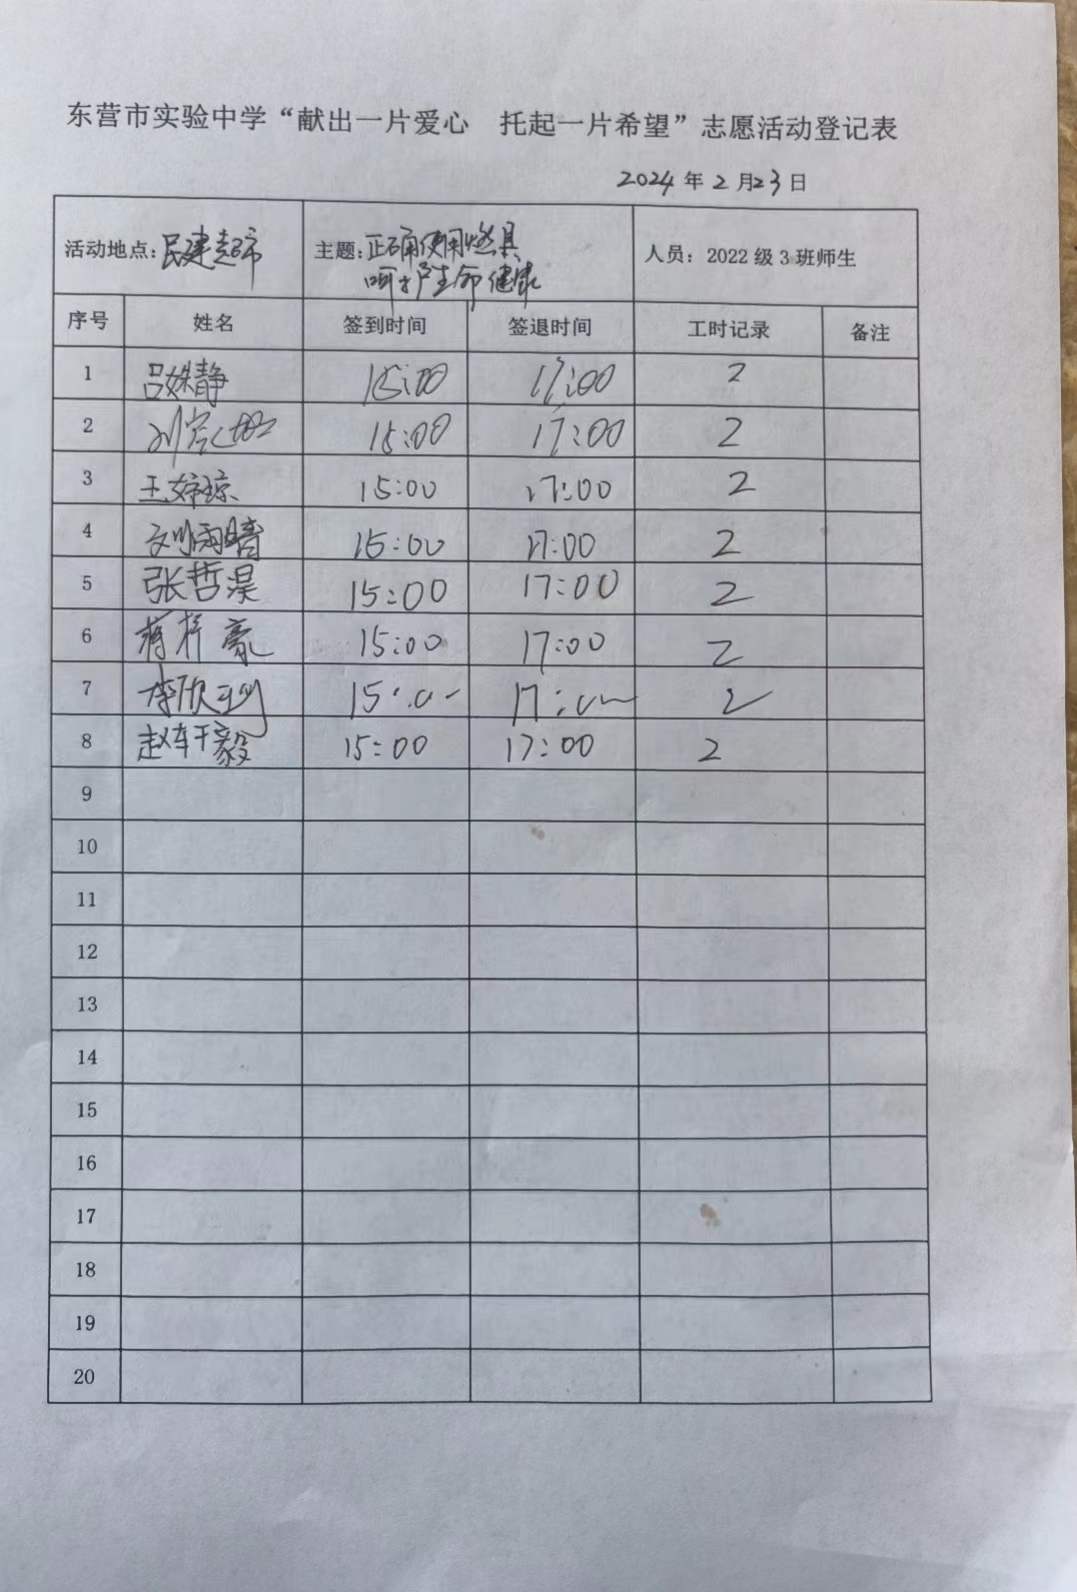 东营市实验中学“献出一片爱心 托起一片希望”志愿活动登记表
2024年2月23日
活动地点:民建超市 主题:正确使用燃具 人员:2022级3班师生
呵护生命健康
序号 姓名 签到时间 签退时间 工时记录 备注
1 吕姝静 15:00 17:00 2
2 15:00 17:00 2
3 王婷琼 15:00 17:00 2
4 刘雨晴 15:00 17:00 2
5 张哲淏 15:00 17:00 2
6 蒋梓豪 15:00 17:00 2
7 李欣 15:00 17:00 2
8 赵轩毅 15:00 17:00 2
9
10
11
12
13
14
15
16
17
18
19
20